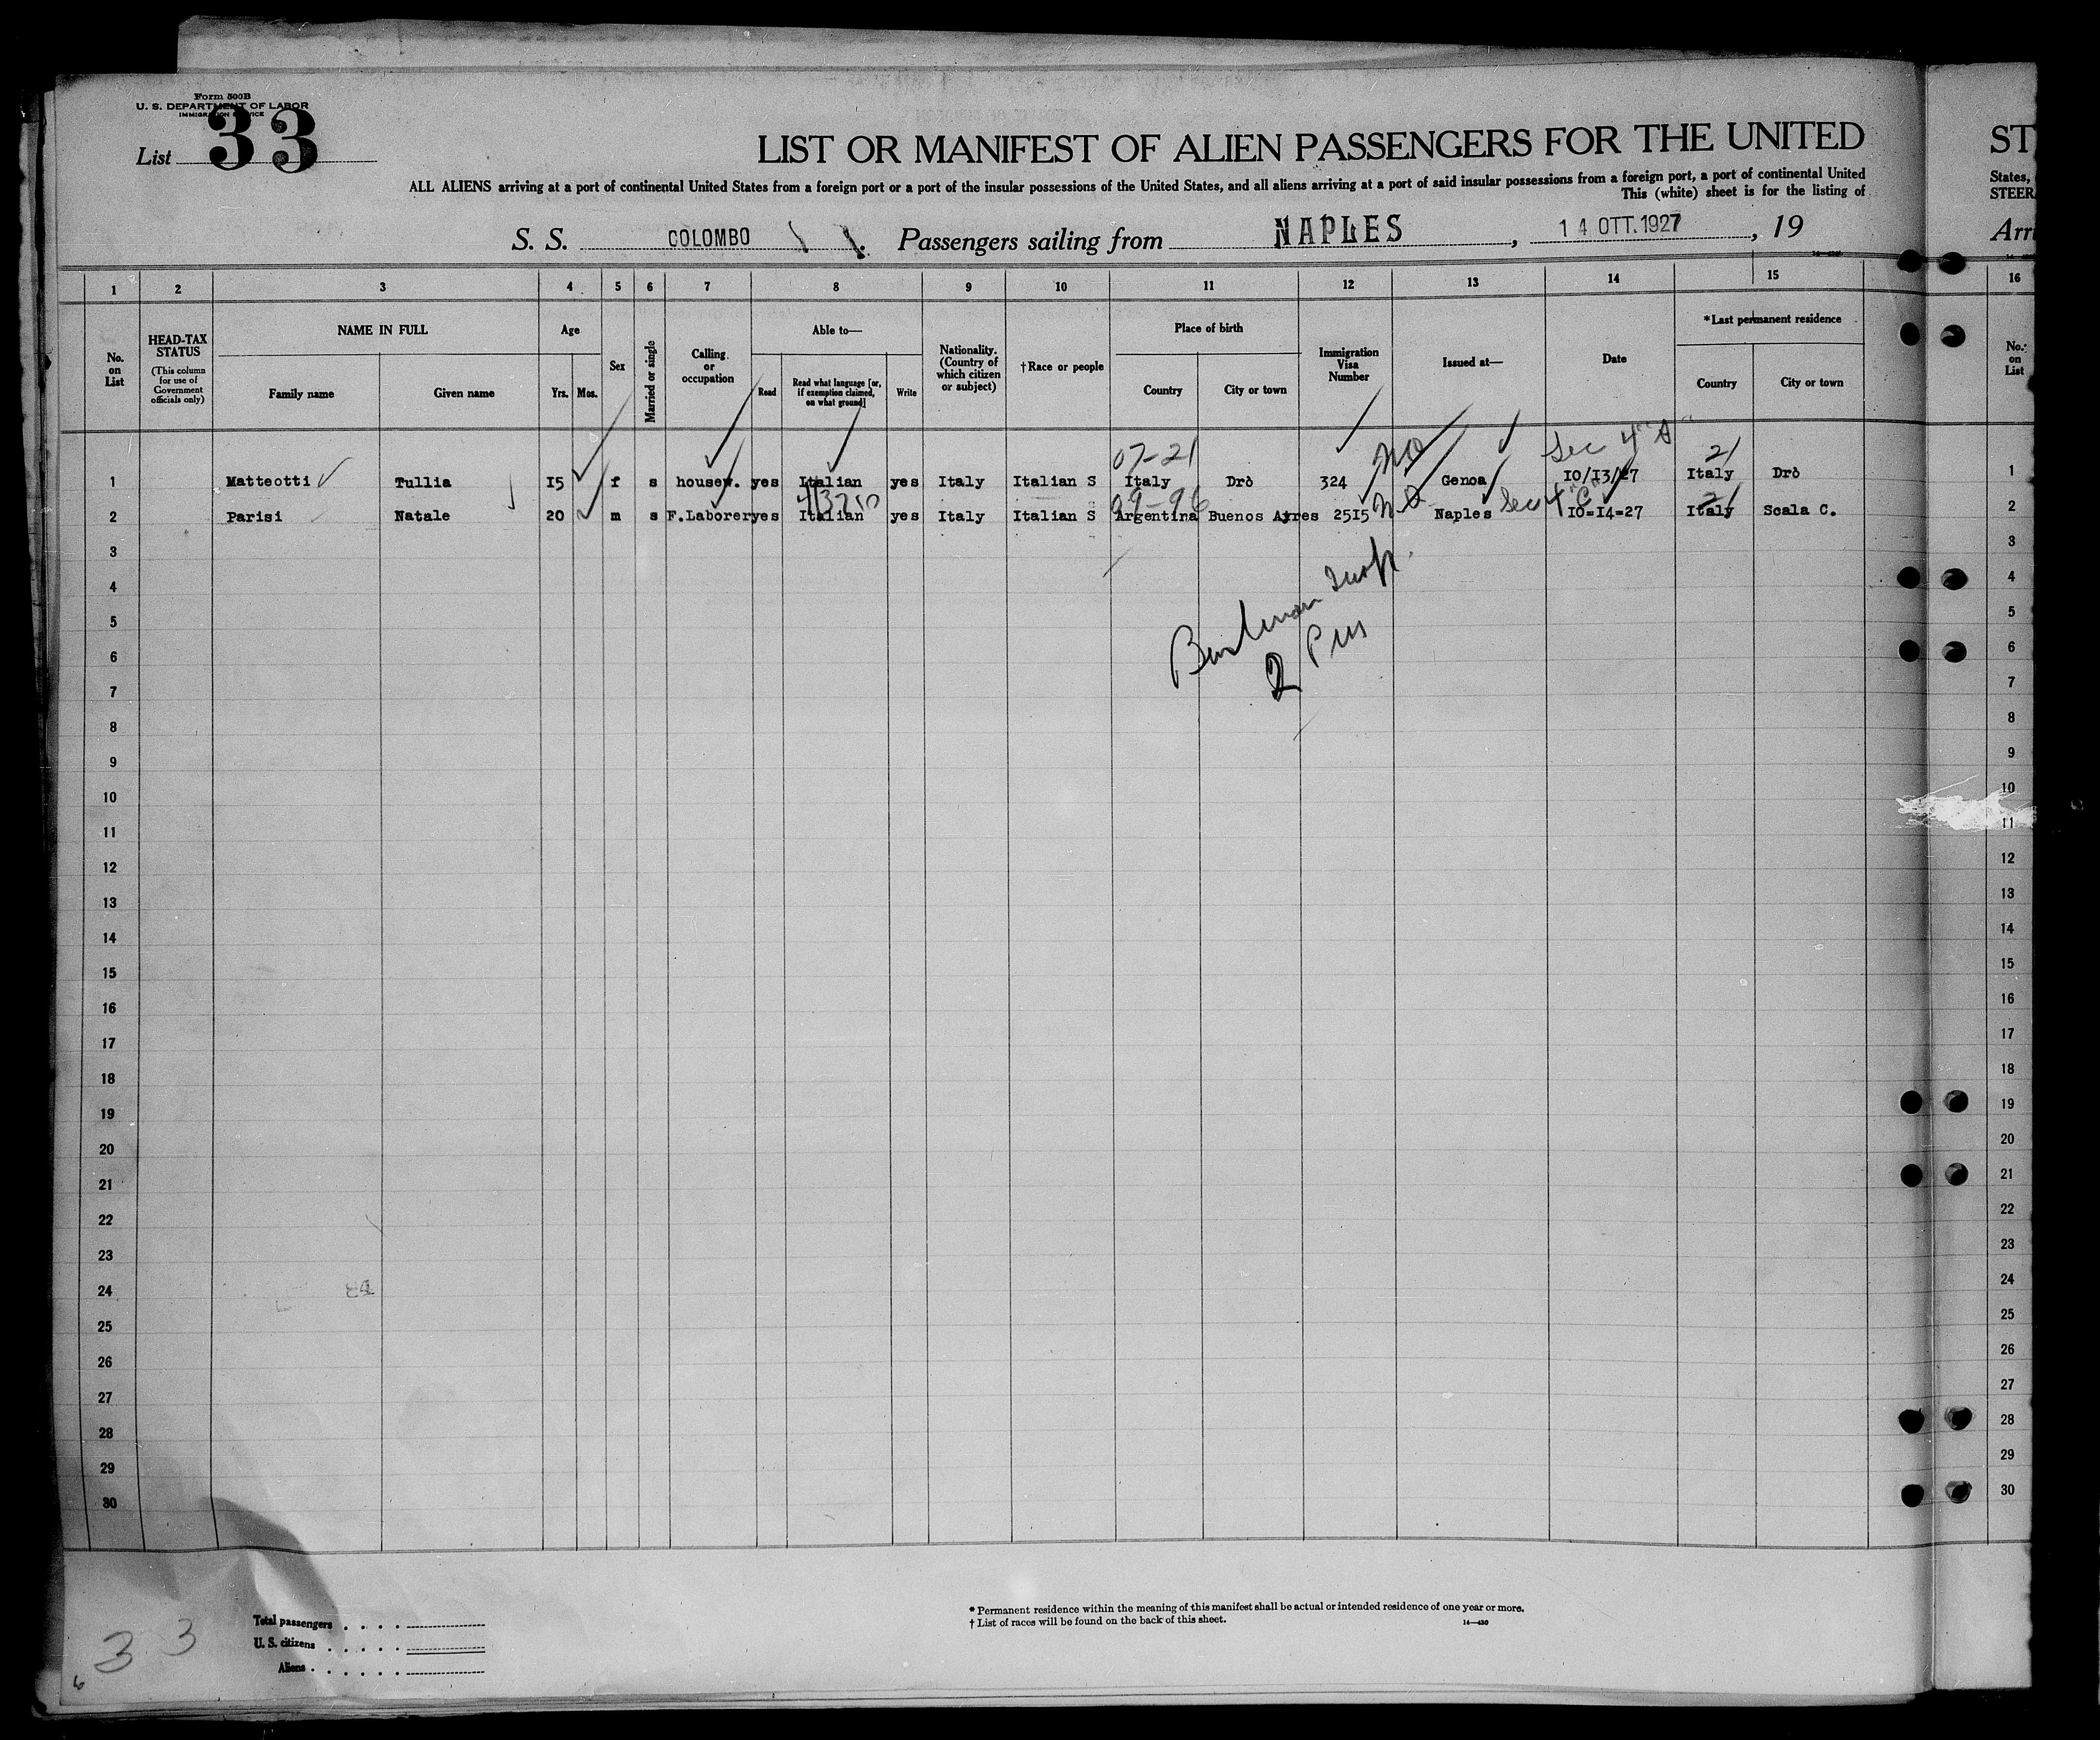 Form 500B
U. S. DEPARTMENT OF LABOR
IMMIGRATION SERVICE
List 33
LIST OR MANIFEST OF ALIEN PASSENGERS FOR THE UNITED
ST
ALL ALIENS arriving at a port of continental United States from a foreign port or a port of the insular possessions of the United States, and all aliens arriving at a port of said insular possessions from a foreign port, a port of continental United
States,
This (white) sheet is for the listing of
STEER
S. S. COLOMBO Passengers sailing from NAPLES, 14 OTT. 1927, 19
Arri
1 2 3 4 5 6 7 8 9 10 11 12 13 14 15 16
No. on List
HEAD-TAX STATUS
(This column for use of Government officials only)
NAME IN FULL
Family name Given name
Age
Yrs. Mos.
Sex
Married or single
Calling or occupation
Able to—
Read
Read what language [or, if exemption claimed, on what ground]
Write
Nationality. (Country of which citizen or subject)
†Race or people
Place of birth
Country City or town
Immigration Visa Number
Issued at—
Date
*Last permanent residence
Country City or town
No. on List
07-21 no Sec 4 "A" 21
1 Matteotti Tullia 15 f s housew. yes Italian yes Italy Italian S Italy Drò 324 Genoa 10/13/27 Italy Drò 1
09-96 no Sec 4 "C" 21
2 Parisi Natale 20 m s F.Laborer yes Italian yes Italy Italian S Argentina Buenos Ayres 2515 Naples 10=14=27 Italy Scala C. 2
3 3
4 4
5 5
6 6
2
7 7
8 8
9 9
10 10
11 11
12 12
13 13
14 14
15 15
16 16
17 17
18 18
19 19
20 20
21 21
22 22
23 23
24 24
25 25
26 26
27 27
28 28
29 29
30 30
* Permanent residence within the meaning of this manifest shall be actual or intended residence of one year or more.
† List of races will be found on the back of this sheet.
14—430
Total passengers
U. S. citizens
Aliens
33